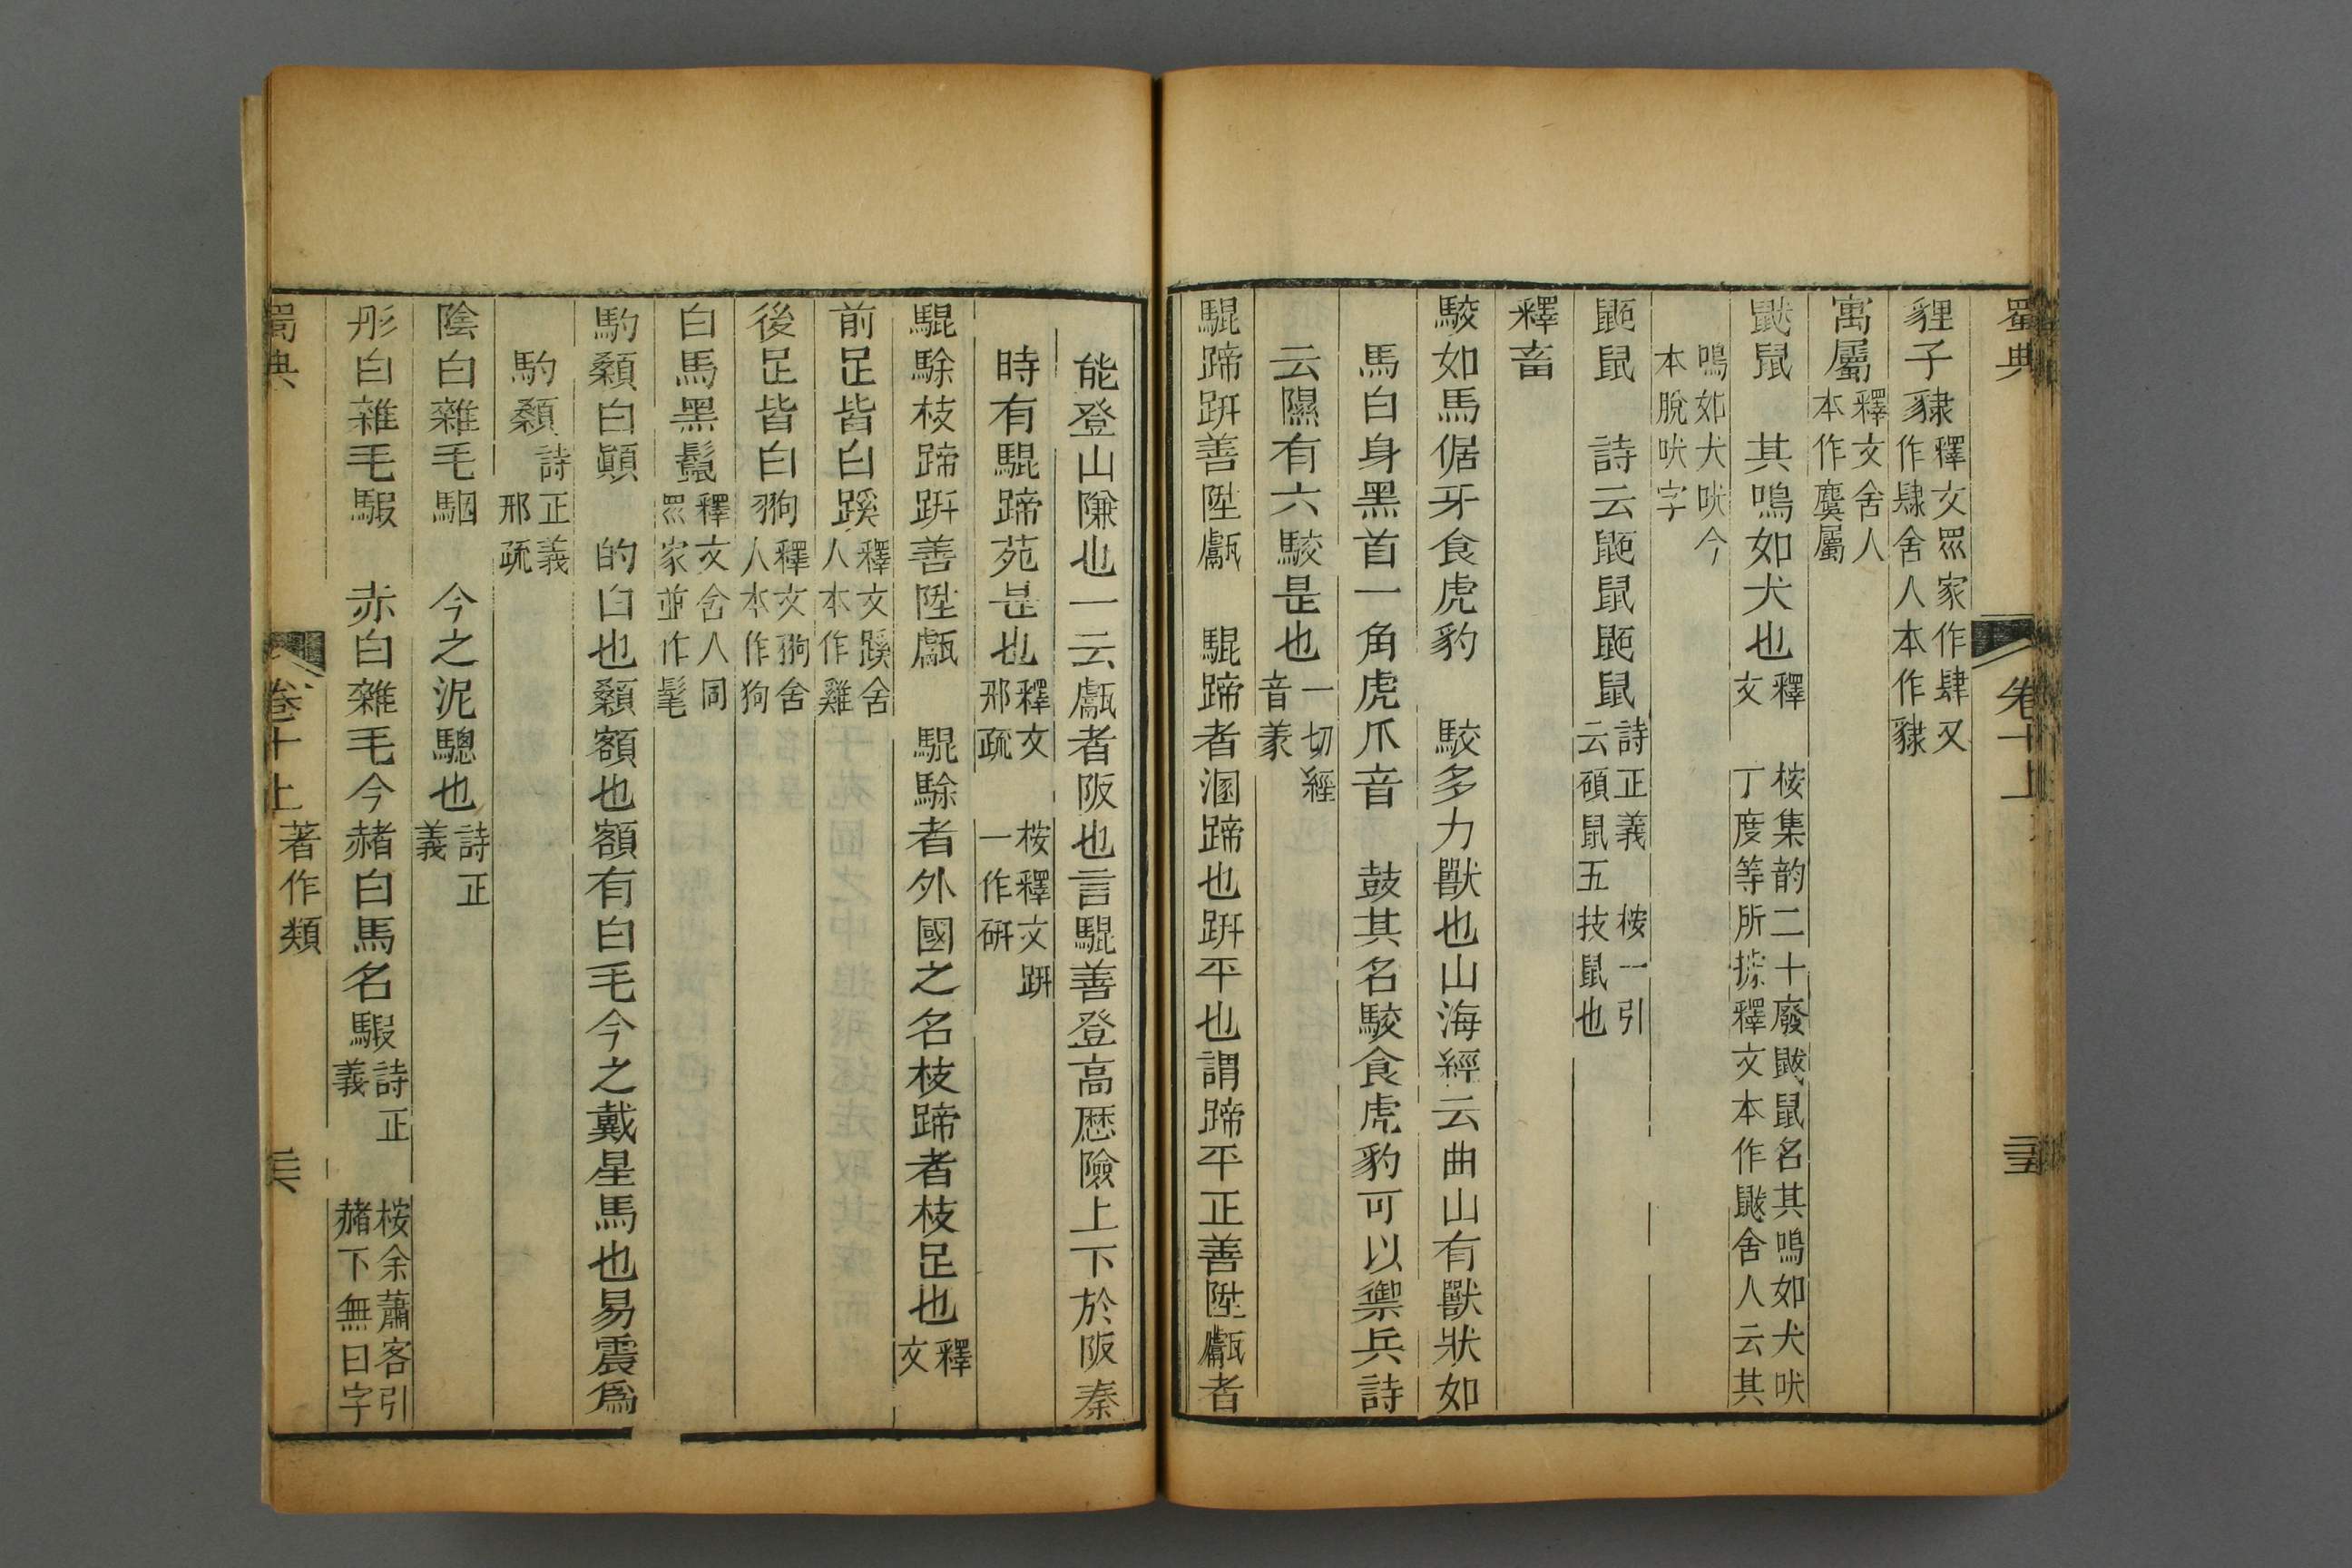 蜀典 卷十上
貍子貄釋文眾家作肆又作肄舍人本作貄
寓屬釋文舍人本作麌屬
鼣鼠 其鳴如犬也釋文 桉集韵二十廢鼣鼠名其鳴如犬吠丁度等所㨿釋文本作鼣舍人云其
鳴如犬吠今本脫吠字
鼫鼠 詩云鼫鼠鼫鼠詩正義 桉一引云碩鼠五技鼠也
釋畜
駮如馬倨牙食虎豹 駮多力獸也山海經云曲山有獸狀如
馬白身黑首一角虎爪音 鼓其名駮食虎豹可以禦兵詩
云隰有六駮是也一切經音義
騉蹄趼善陞甗 騉蹄者溷蹄也趼平也謂蹄平正善陞甗者
能登山隒也一云甗者阪也言騉善登高歷險上下於阪秦
時有騉蹄苑是也釋文邢疏 桉釋文趼一作研
騉駼枝蹄趼善陞甗 騉駼者外國之名枝蹄者枝足也釋文
前足皆白騱釋文騱舍人本作雞
後足皆白翑釋文翑舍人本作狗
白馬黑鬛釋文舍人同眾家並作髦
馰顙白顚 的白也顙額也額有白毛今之戴星馬也易震爲
馰顙詩正義邢疏
陰白雜毛駰 今之泥驄也詩正義
彤白雜毛騢 赤白雜毛今赭白馬名騢詩正義 桉余蕭客引赭下無白字
蜀典 卷十上 著作類